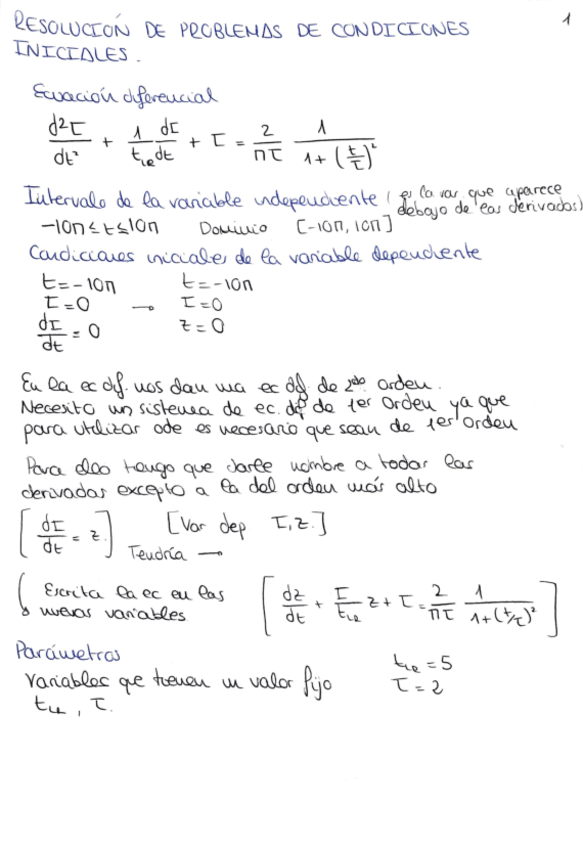 RESOLUCIÓN DE PROBLEMAS DE CONDICIONES 1
INICIALES.
Ecuación diferencial
d²I/dt² + 1/t_le dI/dt + I = 2/πτ 1/(1+(t/τ)²)
Intervalo de la variable independiente (es la var que aparece
debajo de las derivadas)
-10π ≤ t ≤ 10π Dominio [-10π, 10π]
Condiciones iniciales de la variable dependiente
t=-10π t=-10π
I=0 → I=0
dI/dt = 0 z=0
En la ec dif. nos dan una ec dif. de 2do orden.
Necesito un sistema de ec. dif de 1er orden ya que
para utilizar ode es necesario que sean de 1er orden
Para ello tengo que darle nombre a todas las
derivadas excepto a la del orden más alto
[dI/dt = z.] [Var dep I, z.]
Tendría →
Escrita la ec en las
nuevas variables [dz/dt + I/t_le z + I = 2/πτ 1/(1+(t/τ)²)]
Parámetros
Variables que tienen un valor fijo t_le = 5
t_le, τ. τ = 2